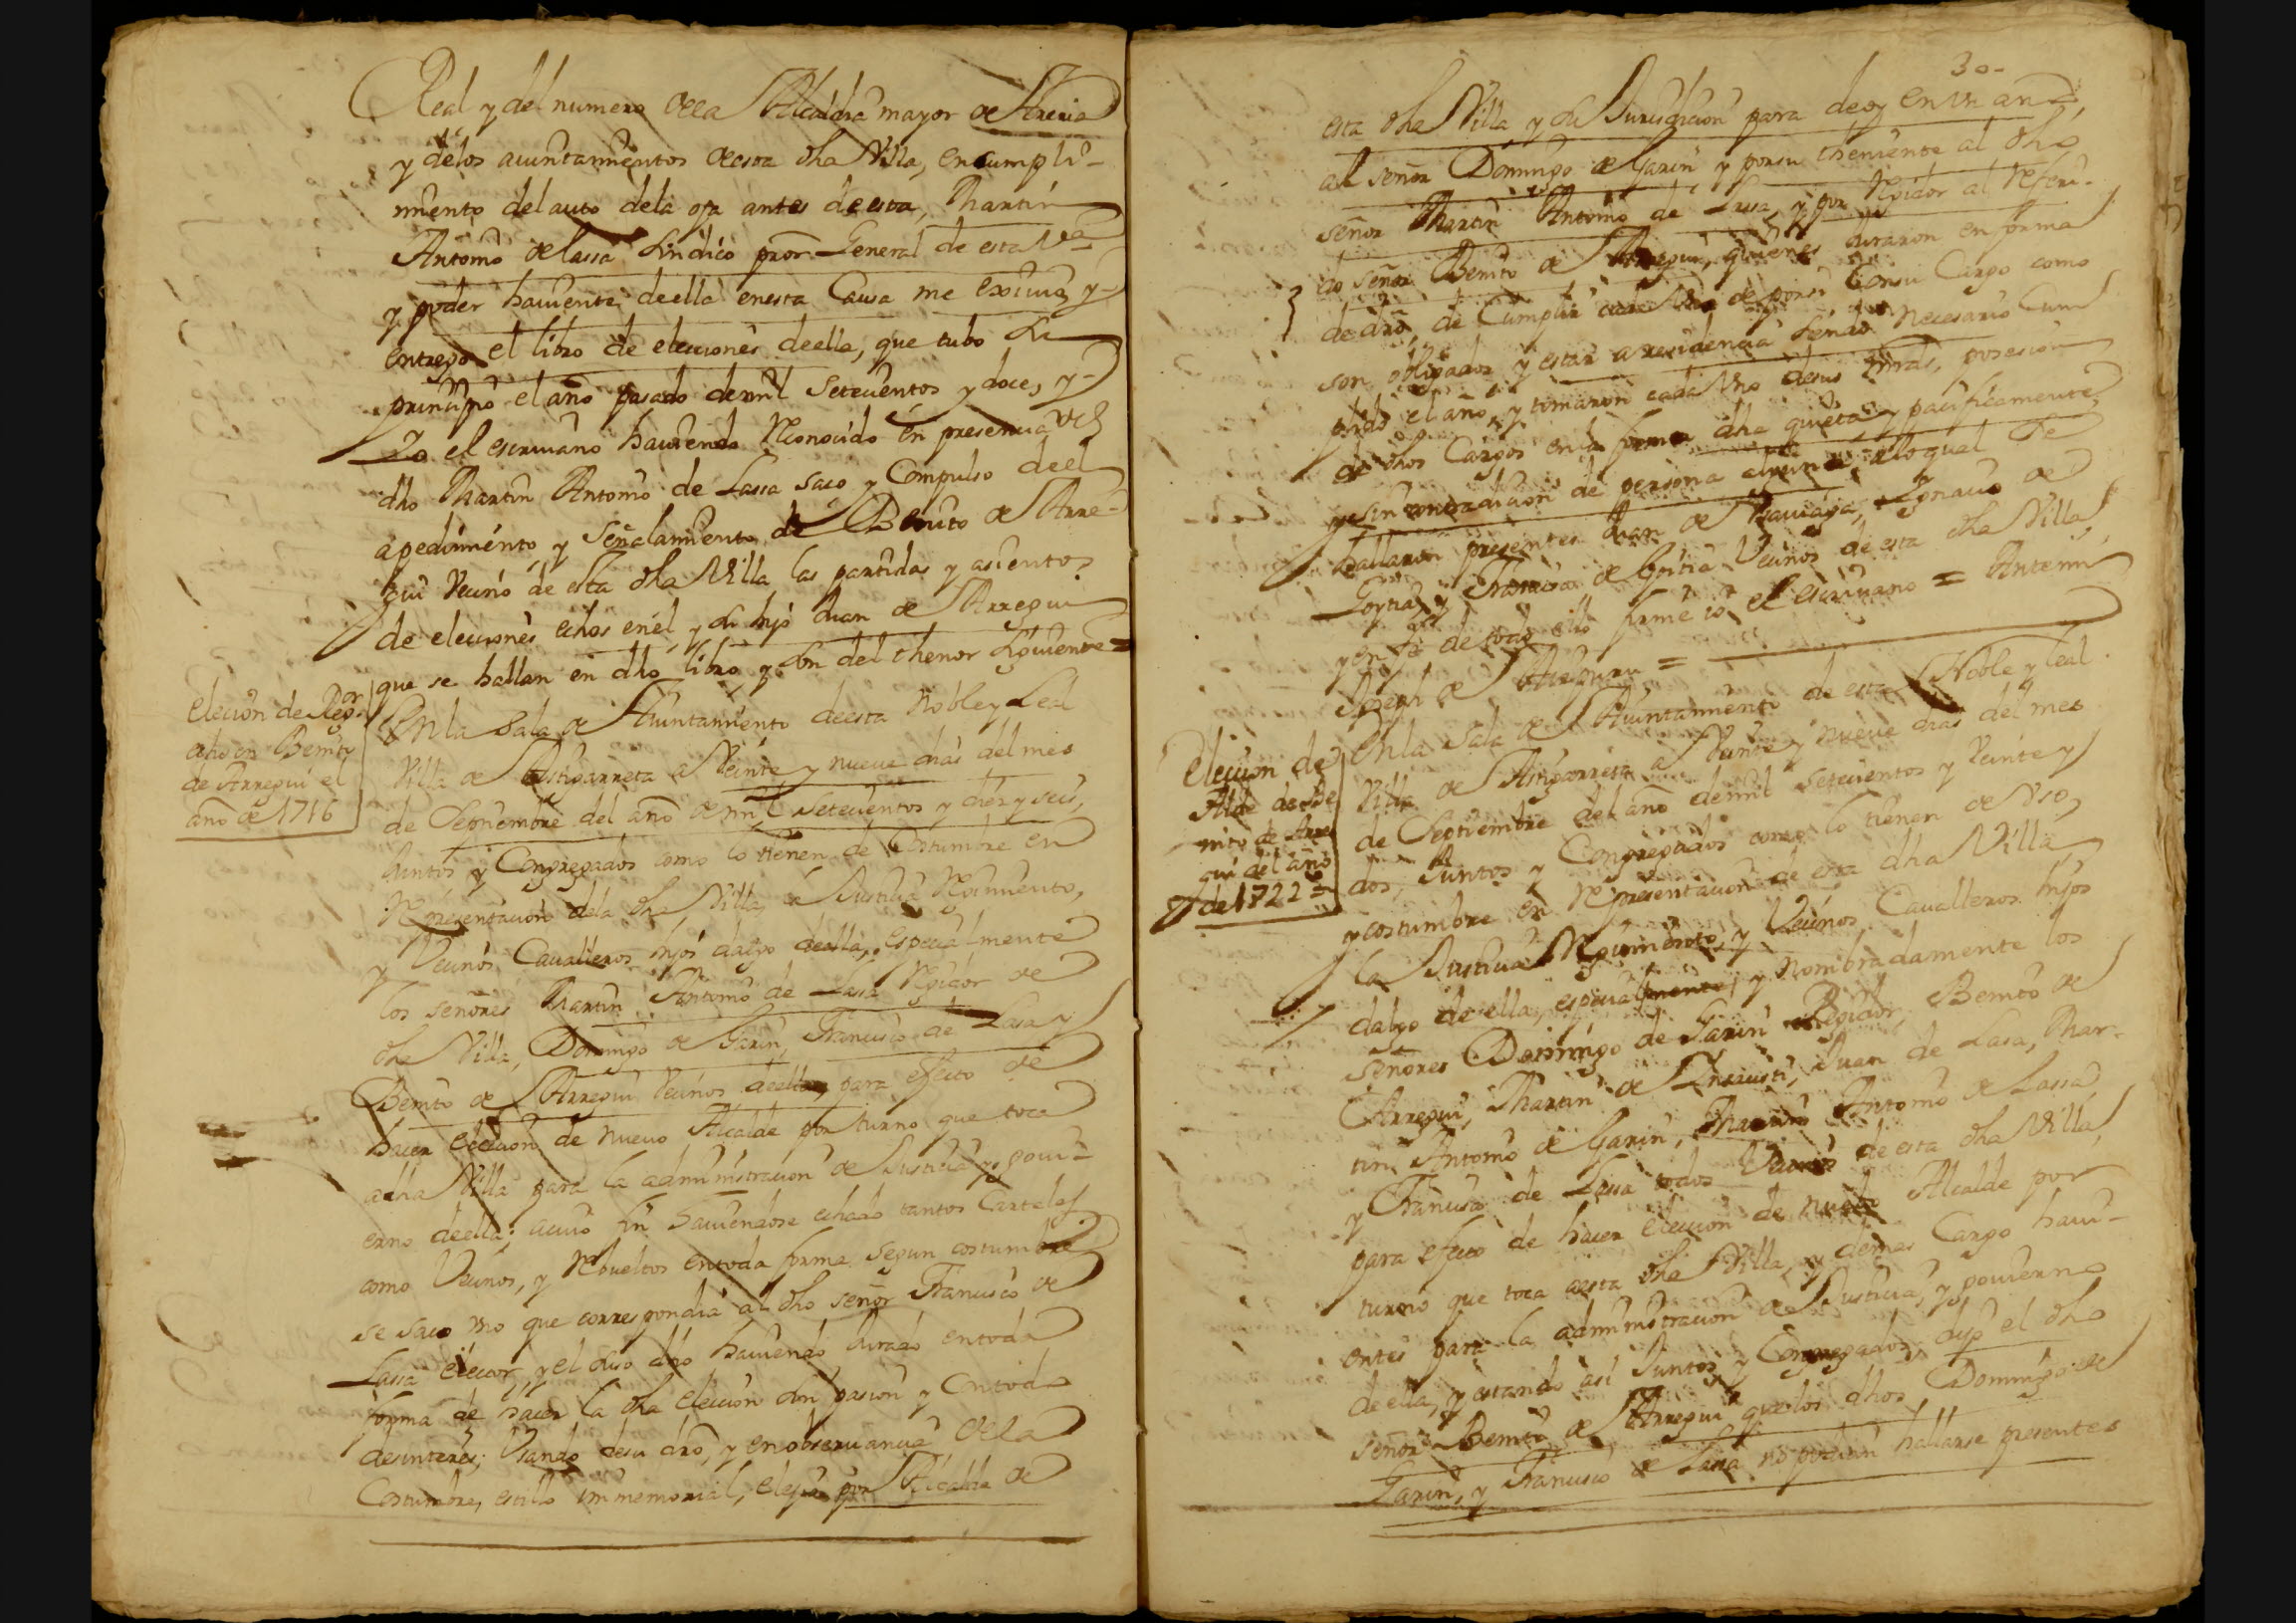 Real y del numero dela Alcaldia mayor de Areria
y delos aiuntamientos de esta dha Villa, en cumpli-
miento del auto dela oja antes de esta, Martin
Antonio de Lassa Sindico pror General de esta Va
y poder hauiente de ella en esta Causa me exiuio y
entrego el libro de elecciones de ella, que tubo su
principio el año pasado de mil setecientos y doce, y
Yo el escriuano hauiendo Reconocido en presencia del
dho Martin Antonio de Lassa saco y Compulso de el
a pedimento, y señalamiento de Benito de Arre-
gui Vecino de esta dha Villa las partidas y asientos
de elecciones echos en el, y su hijo Juan de Arregui
que se hallan en dho libro y son del thenor siguiente =
Elecion de Regor
echo en Benito
de Arregui el
año de 1716
En la Sala de Aiuntamiento de esta Noble y Leal
Villa de Astigarreta a Veinte y nueue dias del mes
de Septiembre del año de mil setecientos y diez y seis,
Juntos y Congregados como lo tienen de Costumbre en
Representacion dela dha Villa, la Justicia Regimiento,
y Vecinos Caualleros hijos dalgo de ella, especialmente
los señores Martin Antonio de Lassa Regidor de
dha Villa, Domingo de Garin, Francisco de Lasa y
Benito de Arregui Vecinos de ella, para efecto de
hacer eleccion de nueuo Alcalde por turno que toca
a dha Villa para la administracion de Justicia y goui-
erno de ella; a cuio fin hauiendose echado tantos Carteles
como Vecinos, y Rebueltos en toda forma segun costumbre
se saco uno que correspondia al dho señor Francisco de
Lassa elector, y el suso dho hauiendo Jurado en toda
forma de hacer la dha eleccion sin pasion y Con todo
desinteres; Usando de su dro, y en obseruancia dela
Costumbre, estillo immemorial, elegia por Alcalde de
30
esta dha Villa y su Jurisdicion para de oy en un año,
al señor Domingo de Garin y por su theniente al dho
señor Martin Antonio de Lassa, y por Regidor al Referi-
do señor Benito de Arregui, quienes Juraron en forma
de dro, de Cumplir cada Uno de por si Con su Cargo como
son obligados y estar a residencia siendo necesario Cum
plido el año, y tomaron cada Uno de sus mrds, posesion
de dhos Cargos en la forma dha quieta y pacificamente
y sin contradicion de persona alguna, a lo qual Se
hallaron presentes Juan de Ygnacio de
Goytia y Francisco de Goitia Vecinos de esta dha Villa,
y en fe de todo ello firme io el escriuano = Antemi
Joseph de =
Elecion de
Alde de Be
nito de Arre
gui del año
de 1722 =
En la Sala de Aiuntamiento de esta Noble y Leal
Villa de Astigarreta a Veinte y nueue dias del mes
de Septiembre del año de mil setecientos y Veinte y
dos, Juntos y Congregados como lo tienen de Uso,
y costumbre en Representacion de esta dha Villa
la Justicia Regimiento, y Vecinos Caualleros hijos
dalgo de ella, especialmente, y nombradamente los
señores Domingo de Garin Regidor, Benito de
Arregui, Martin de Juan de Lasa, Mar-
tin Antonio de Garin, Antonio de Lassa
y Francisco de Lassa todos Vecinos de esta dha Villa,
para efecto de hacer eleccion de nueuo Alcalde por
turno que toca a esta dha Villa, y demas Cargo haui-
entes para la administracion de Justicia, y gouierno
de ella, y estando asi Juntos y Congregados, dijo el dho
señor Benito de Arregui que los dhos Domingo de
Garin, y Francisco de Lassa no podian hallarse presentes